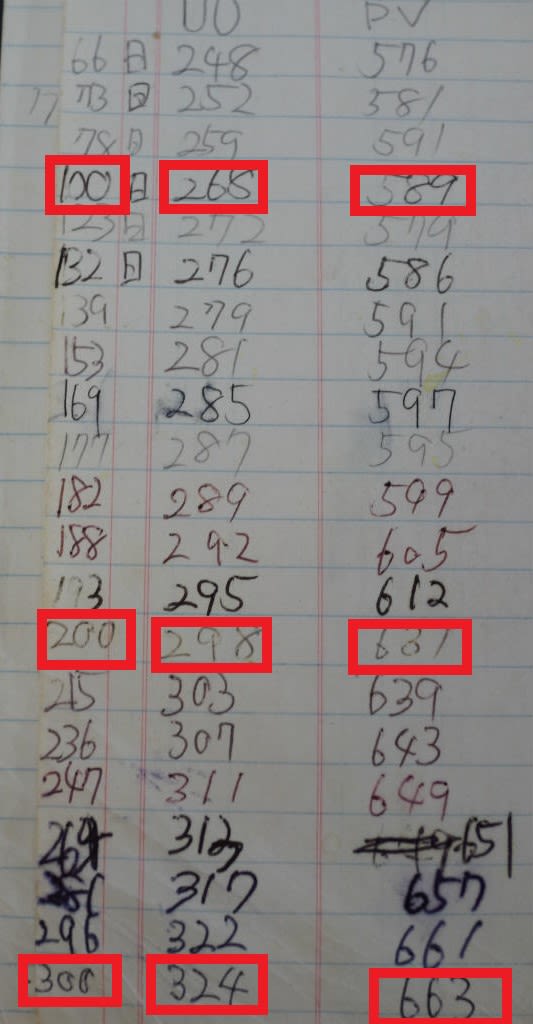 UU PV
66日 248 576
77 73日 252 581
78日 259 591
100日 268 589
123日 272 579
132日 276 586
139 279 591
153 281 594
169 285 597
177 287 595
182 289 599
188 292 605
193 295 612
200 298 631
215 303 639
236 307 643
247 311 649
313 651
317 657
296 322 661
300 324 663